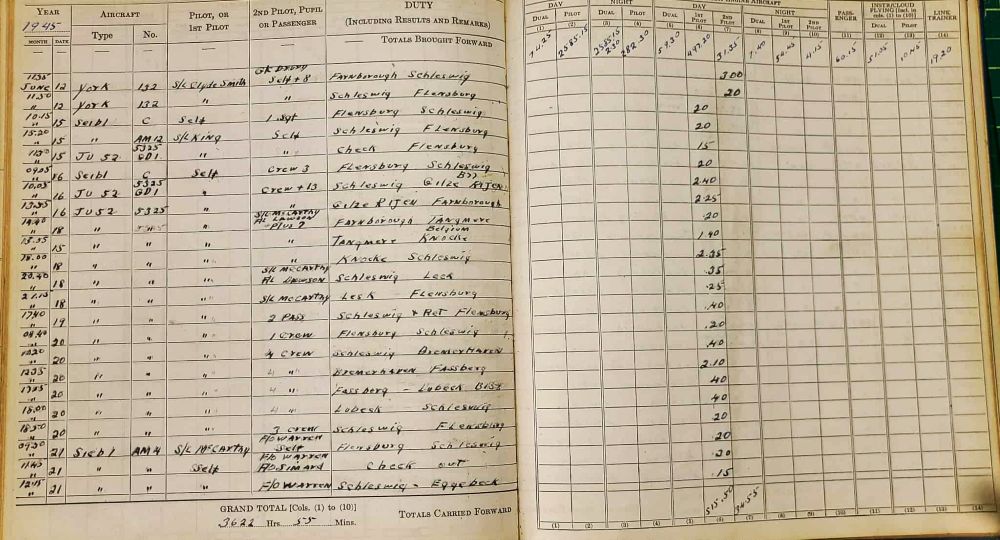 YEAR AIRCRAFT PILOT, OR 2ND PILOT, PUPIL DUTY
1945 1ST PILOT OR PASSENGER (INCLUDING RESULTS AND REMARKS)
MONTH DATE Type No. TOTALS BROUGHT FORWARD
DAY NIGHT ENGINE AIRCRAFT PASS- INSTR/CLOUD LINK
DUAL PILOT DUAL PILOT DUAL 1ST PILOT 2ND PILOT DUAL 1ST PILOT 2ND PILOT ENGER FLYING [Incl. in cols. (1) to (10)] TRAINER
DUAL PILOT
(1) (2) (3) (4) (5) (6) (7) (8) (9) (10) (11) (12) (13) (14)
74.25 2585.15 282.30 59.30 497.20 31.35 7.40 4.15 60.15 51.35 10.45 19.20
GK Drury
11.35
JUNE 12 York 132 S/L Clyde Smith Self + 8 Farnborough Schleswig 3.00
11.50
" 12 York 132 " " Schleswig Flensburg 20
10.15
" 15 Seibl C Self 1 Sgt Flensburg Schleswig 20
15.20
" 15 " AM12 S/L King Self Schleswig Flensburg 20
" 15 JU 52 5325 GD1 " " Check Flensburg 15
09.05
" 16 Seibl C Self Crew 3 Flensburg Schleswig 20
10.05
" 16 JU 52 5325 GD1 " Crew + 13 Schleswig Gilze Rijen B77 2.40
13.55
" 16 JU52 5325 " " Gilze Rijen Farnborough 2.25
14.40
" 18 " " " S/L McCarthy F/L Lawson Plus 2 Farnborough Tangmere 20
15.55
" 15 " " " " Tangmere Knocke Belgium 1.40
18.00
" 18 " " " " Knocke Schleswig 2.35
20.40
" 18 " " " S/L McCarthy F/L Lawson Schleswig Leck .35
21.15
" 18 " " " S/L McCarthy Leck Flensburg .25
17.40
" 19 " " " 2 Pass Schleswig & Ret Flensburg .40
08.40
" 20 " " " 1 Crew Flensburg Schleswig .20
10.20
" 20 " " " 4 Crew Schleswig Bremerhaven .40
12.35
" 20 " " " 4 " Bremerhaven Fassberg 2.10
" 20 " " " 4 " Fassberg - Lubeck 40
18.00
" 20 " " " 4 " Lubeck - Schleswig 40
18.50
" 20 " " " 3 Crew Schleswig Flensburg 20
09.30
" 21 Siebl AM4 S/L McCarthy F/O Warren Self Flensburg Schleswig 20
11.45
" 21 " " Self F/O Warren F/O Simard Check out 20
12.15
" 21 " " " F/O Warren Schleswig - Eggebeck .15
GRAND TOTAL [Cols. (1) to (10)] TOTALS CARRIED FORWARD 515.50 34.55
3622 Hrs. 55 Mins.
(1) (2) (3) (4) (5) (6) (7) (8) (9) (10) (11) (12) (13) (14)